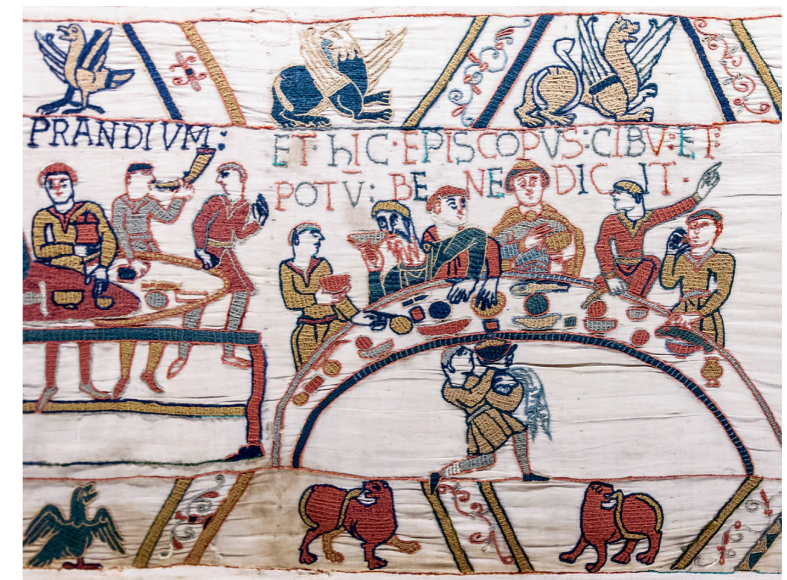 PRANDIVM:
ET·hIC·EPISCOPVS:CIBV̄:ET·
POTV̄: BENEDICIT·